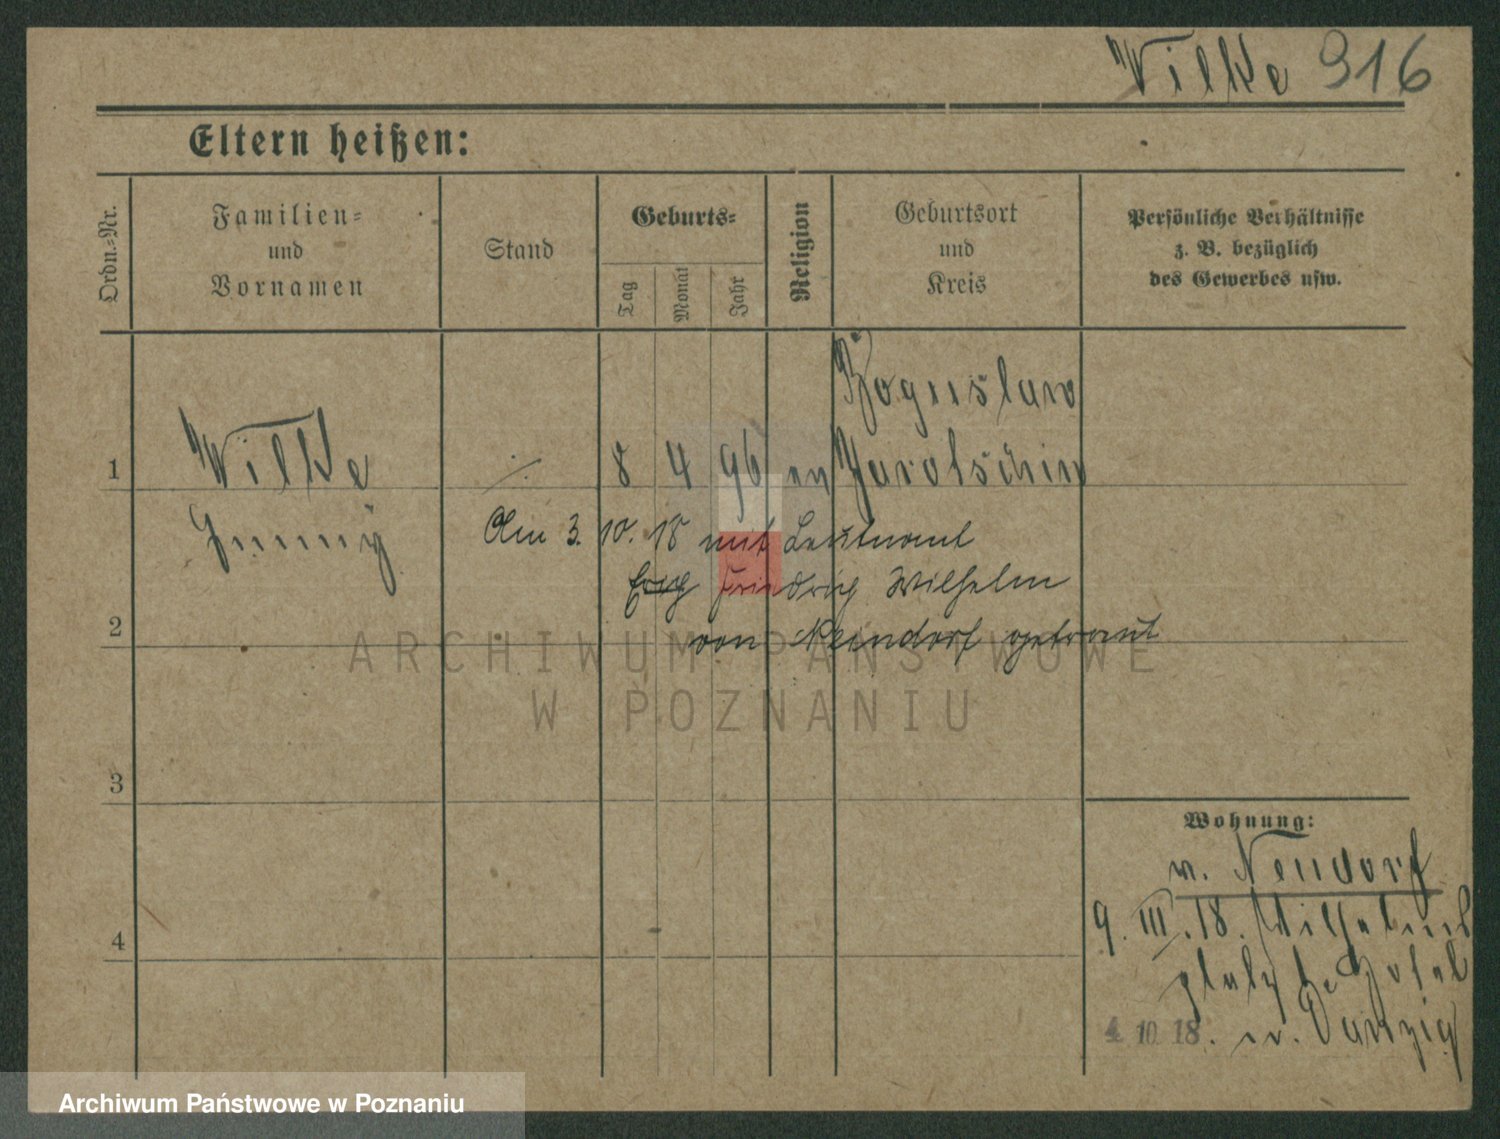 Wilke 916
Eltern heißen:
Ordn.-Nr.
Familien-
und
Vornamen
Stand
Geburts-
Tag
Monat
Jahr
Religion
Geburtsort
und
Kreis
Persönliche Verhältnisse
z. B. bezüglich
des Gewerbes usw.
Boguslaw
1 Wilke ./. 8 4 96 ev Jarotschin
Am 3. 10. 18 mit Leutnant
Erich Friedrich Wilhelm
2
von Neindorf getraut
3
Wohnung:
v. Neudorf
9. III. 18. Wilhelms
platz
4
4. 10. 18. n. Danzig
ARCHIWUM PAŃSTWOWE
W POZNANIU
Archiwum Państwowe w Poznaniu